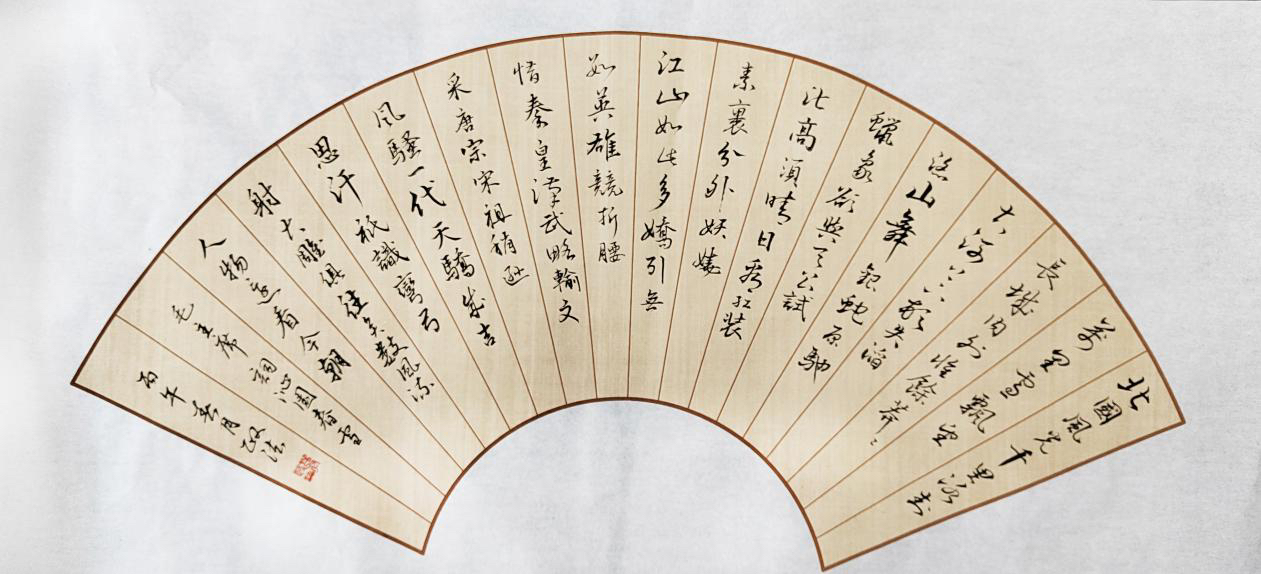 北國風光千里冰封
萬里雪飄望
長城内外惟餘莽々
大河上下頓失滔
滔山舞銀蛇原馳
蠟象欲與天公試
比高須晴日看紅裝
素裹分外妖嬈
江山如此多嬌引無
數英雄競折腰
惜秦皇漢武略輸文
采唐宗宋祖稍遜
風騷一代天驕成吉
思汗祇識彎弓
射大雕俱往矣數風流
人物還看今朝
毛主席詞沁園春雪
丙午春月政法